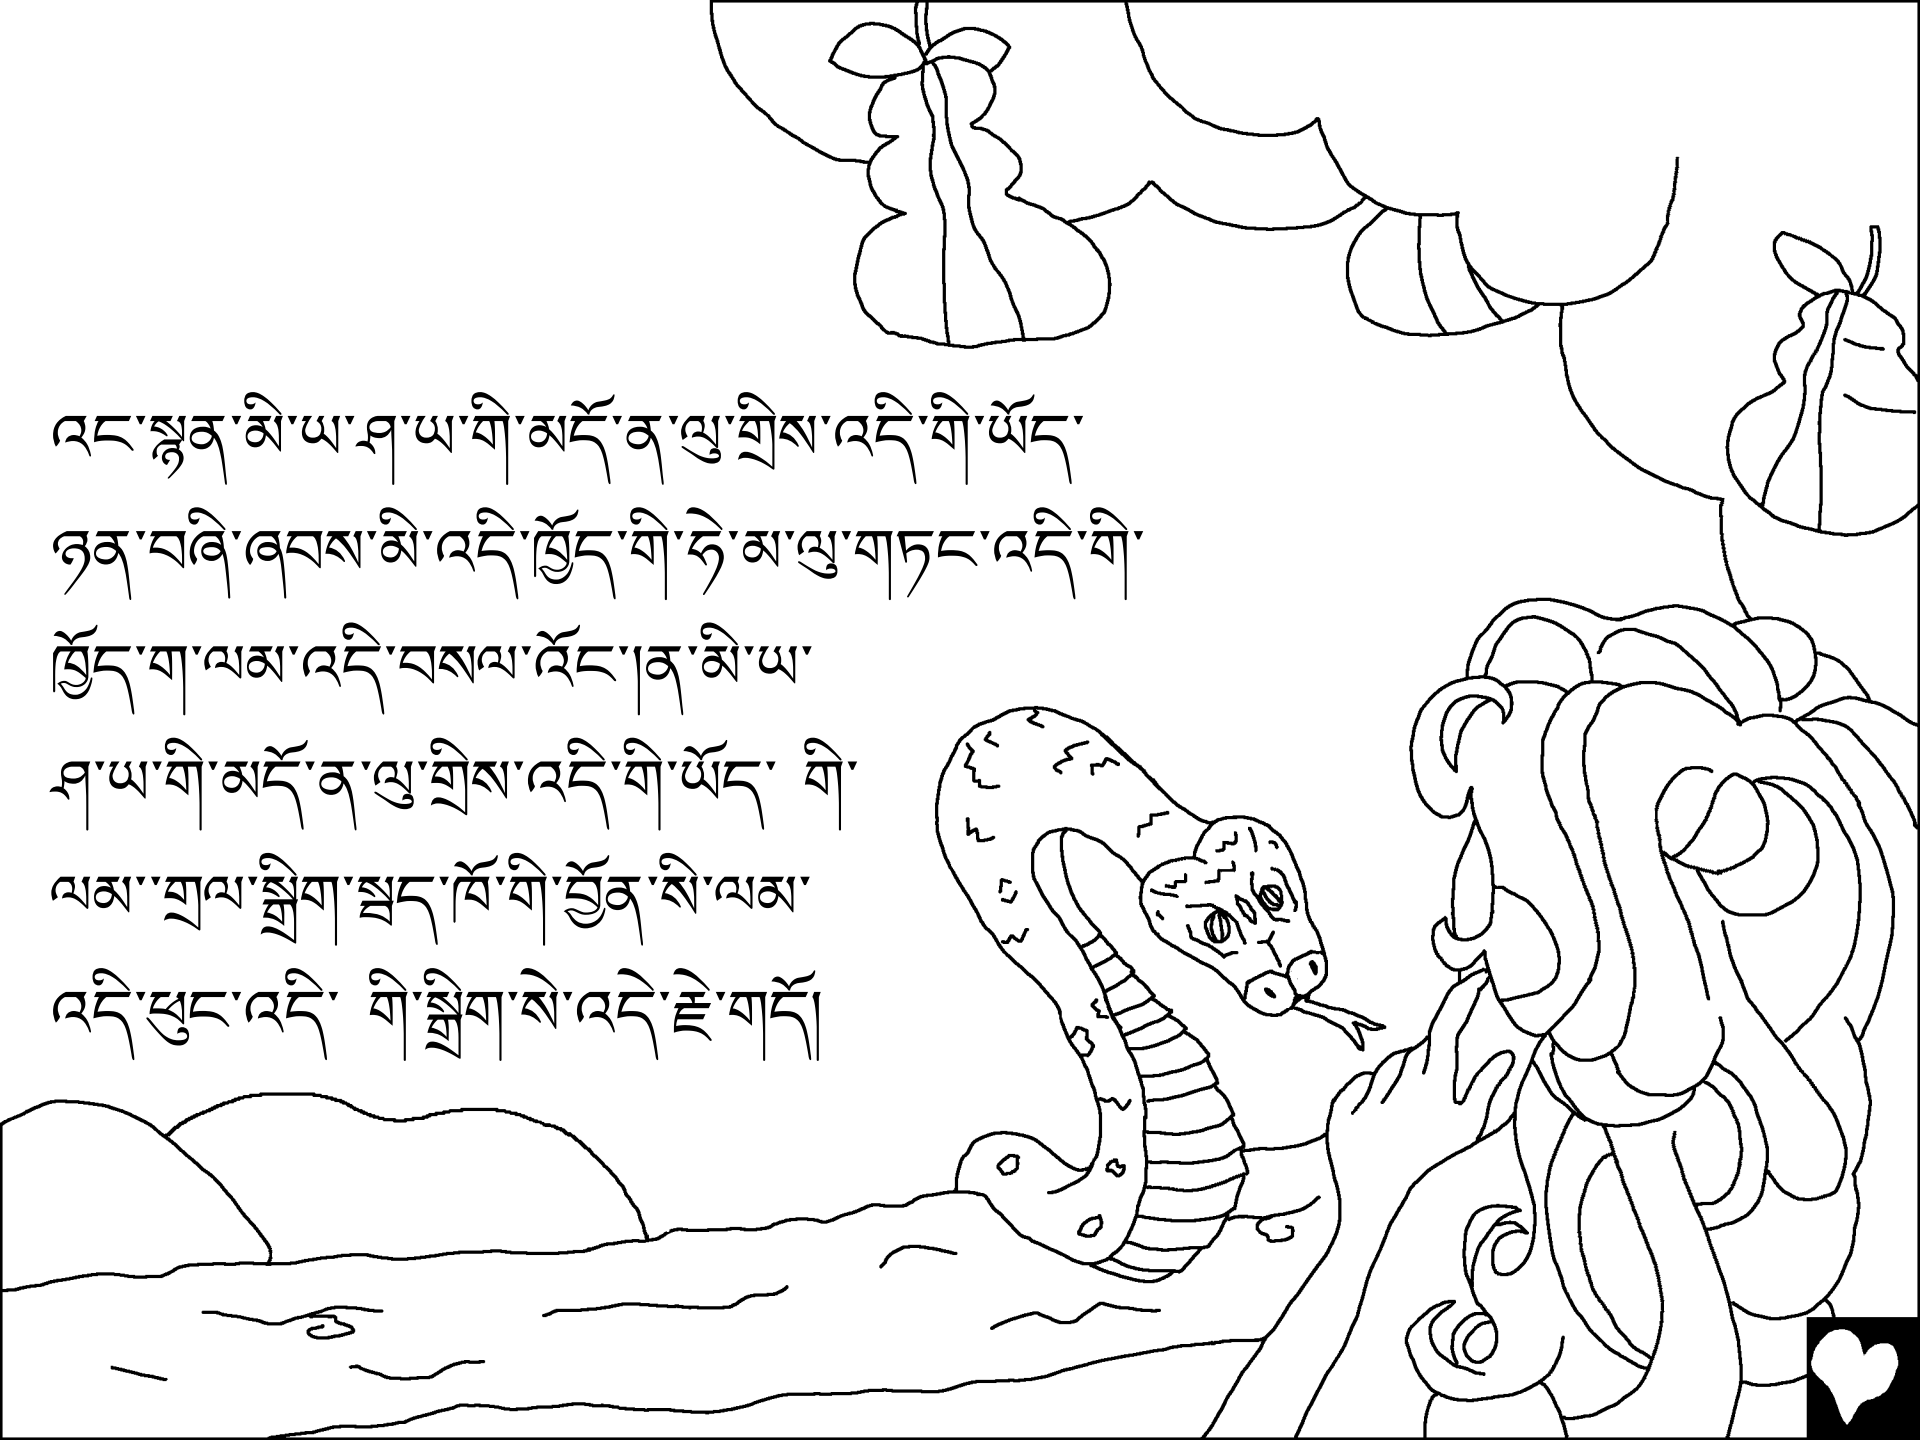 འང་སྙན་མི་ཡ་ཤ་ཡ་གི་མདོ་ན་ལུ་གྲིས་འདི་གི་ཡོད་
ཉན་བཞི་ཞབས་མི་འདི་ཁྱོད་གི་ཧེ་མ་ལུ་གཏང་འདི་གི་
ཁྱོད་ག་ལམ་འདི་བསལ་འོང་།ན་མི་ཡ་
ཤ་ཡ་གི་མདོ་ན་ལུ་གྲིས་འདི་གི་ཡོད་ གི་
ལམ་་གྲལ་སྒྲིག་སྦད་ཁོ་གི་བྱོན་སི་ལམ་
འདི་ཕུང་འདི་ གི་སྒྲིག་སེ་འདེ་རྗེ་གདོ།